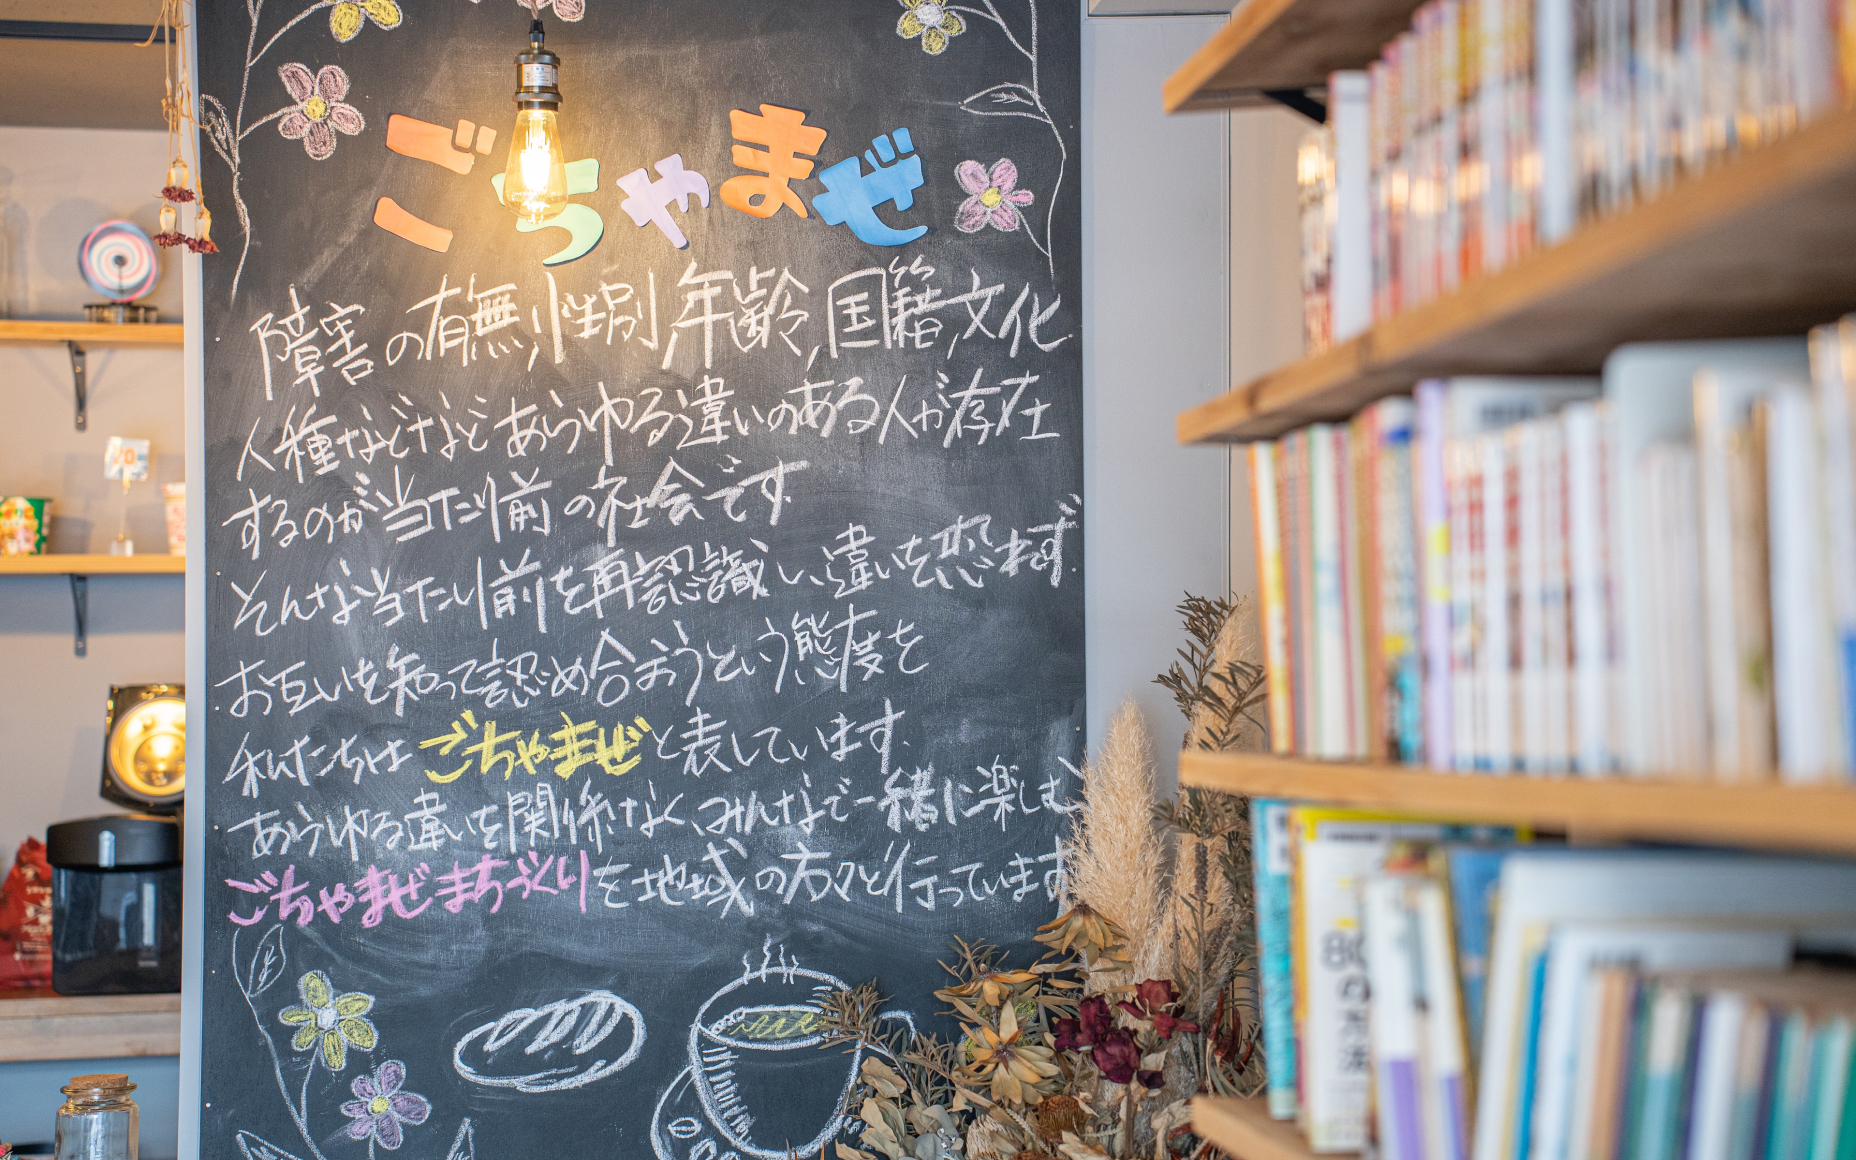 ごちゃまぜ
障害の有無,性別,年齢,国籍,文化
人種などなどあらゆる違いのある人が存在
するのが当たり前の社会です
そんな当たり前を再認識し、違いを恐れず
お互いを知って認め合おうという態度を
私たちはごちゃまぜと表しています。
あらゆる違いを関係なく、みんなで一緒に楽しむ
ごちゃまぜまちづくりを地域の方々と行っています